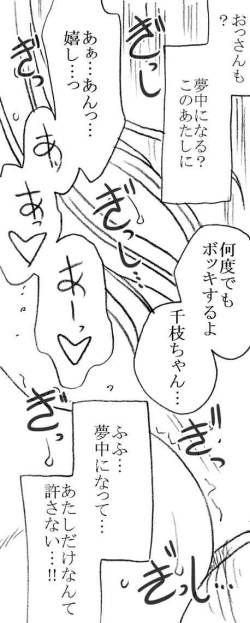 おっさんも
?
夢中になる?
このあたしに
ぎっし
あぁ…あんっ…
嬉し…っ
ぎっ
あっ
あっ♡
あーっ♡
ぎっし…
何度でも
ボッキするよ
千枝ちゃん…
ぎっ
ぎしっ…
ふふ…
夢中になって…
あたしだけなんて
許さない…!!